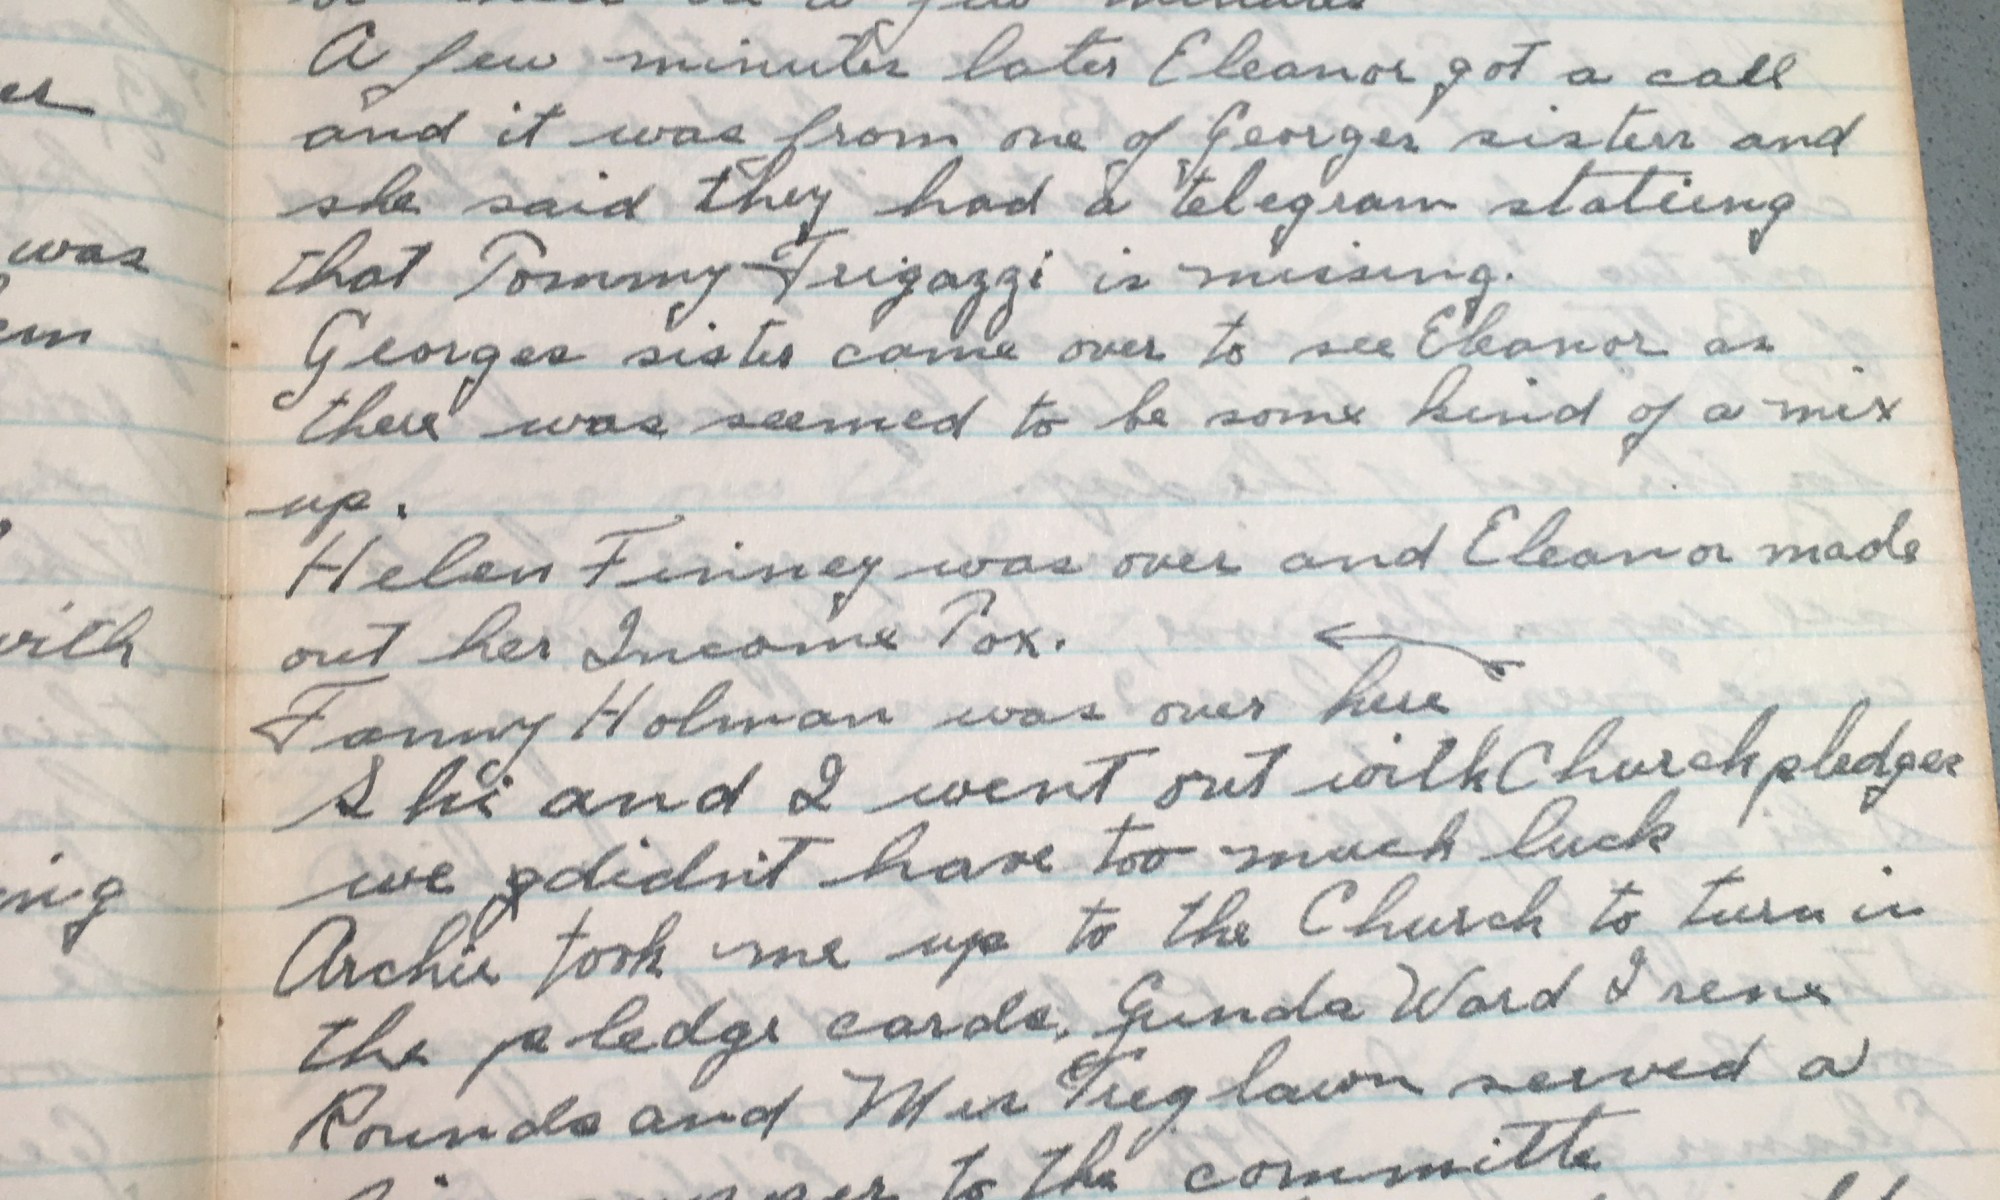 er
was
with
ing
a few minutes
A few minutes later Eleanor got a call
and it was from one of Georges sisters and
she said they had a telegram statiing
that Tommy Frigazzi is missing.
Georges sister came over to see Eleanor as
there was seemed to be some kind of a mix
up.
Helen Finney was over and Eleanor made
out her Income Tax.
Fanny Holman was over here
Shi and I went out with Church pledges
we didn't have too much luck
Archie took me up to the Church to turn in
the pledge cards. Gunda Ward Irene
Rounds and Mrs Treglawn served a
to the committe